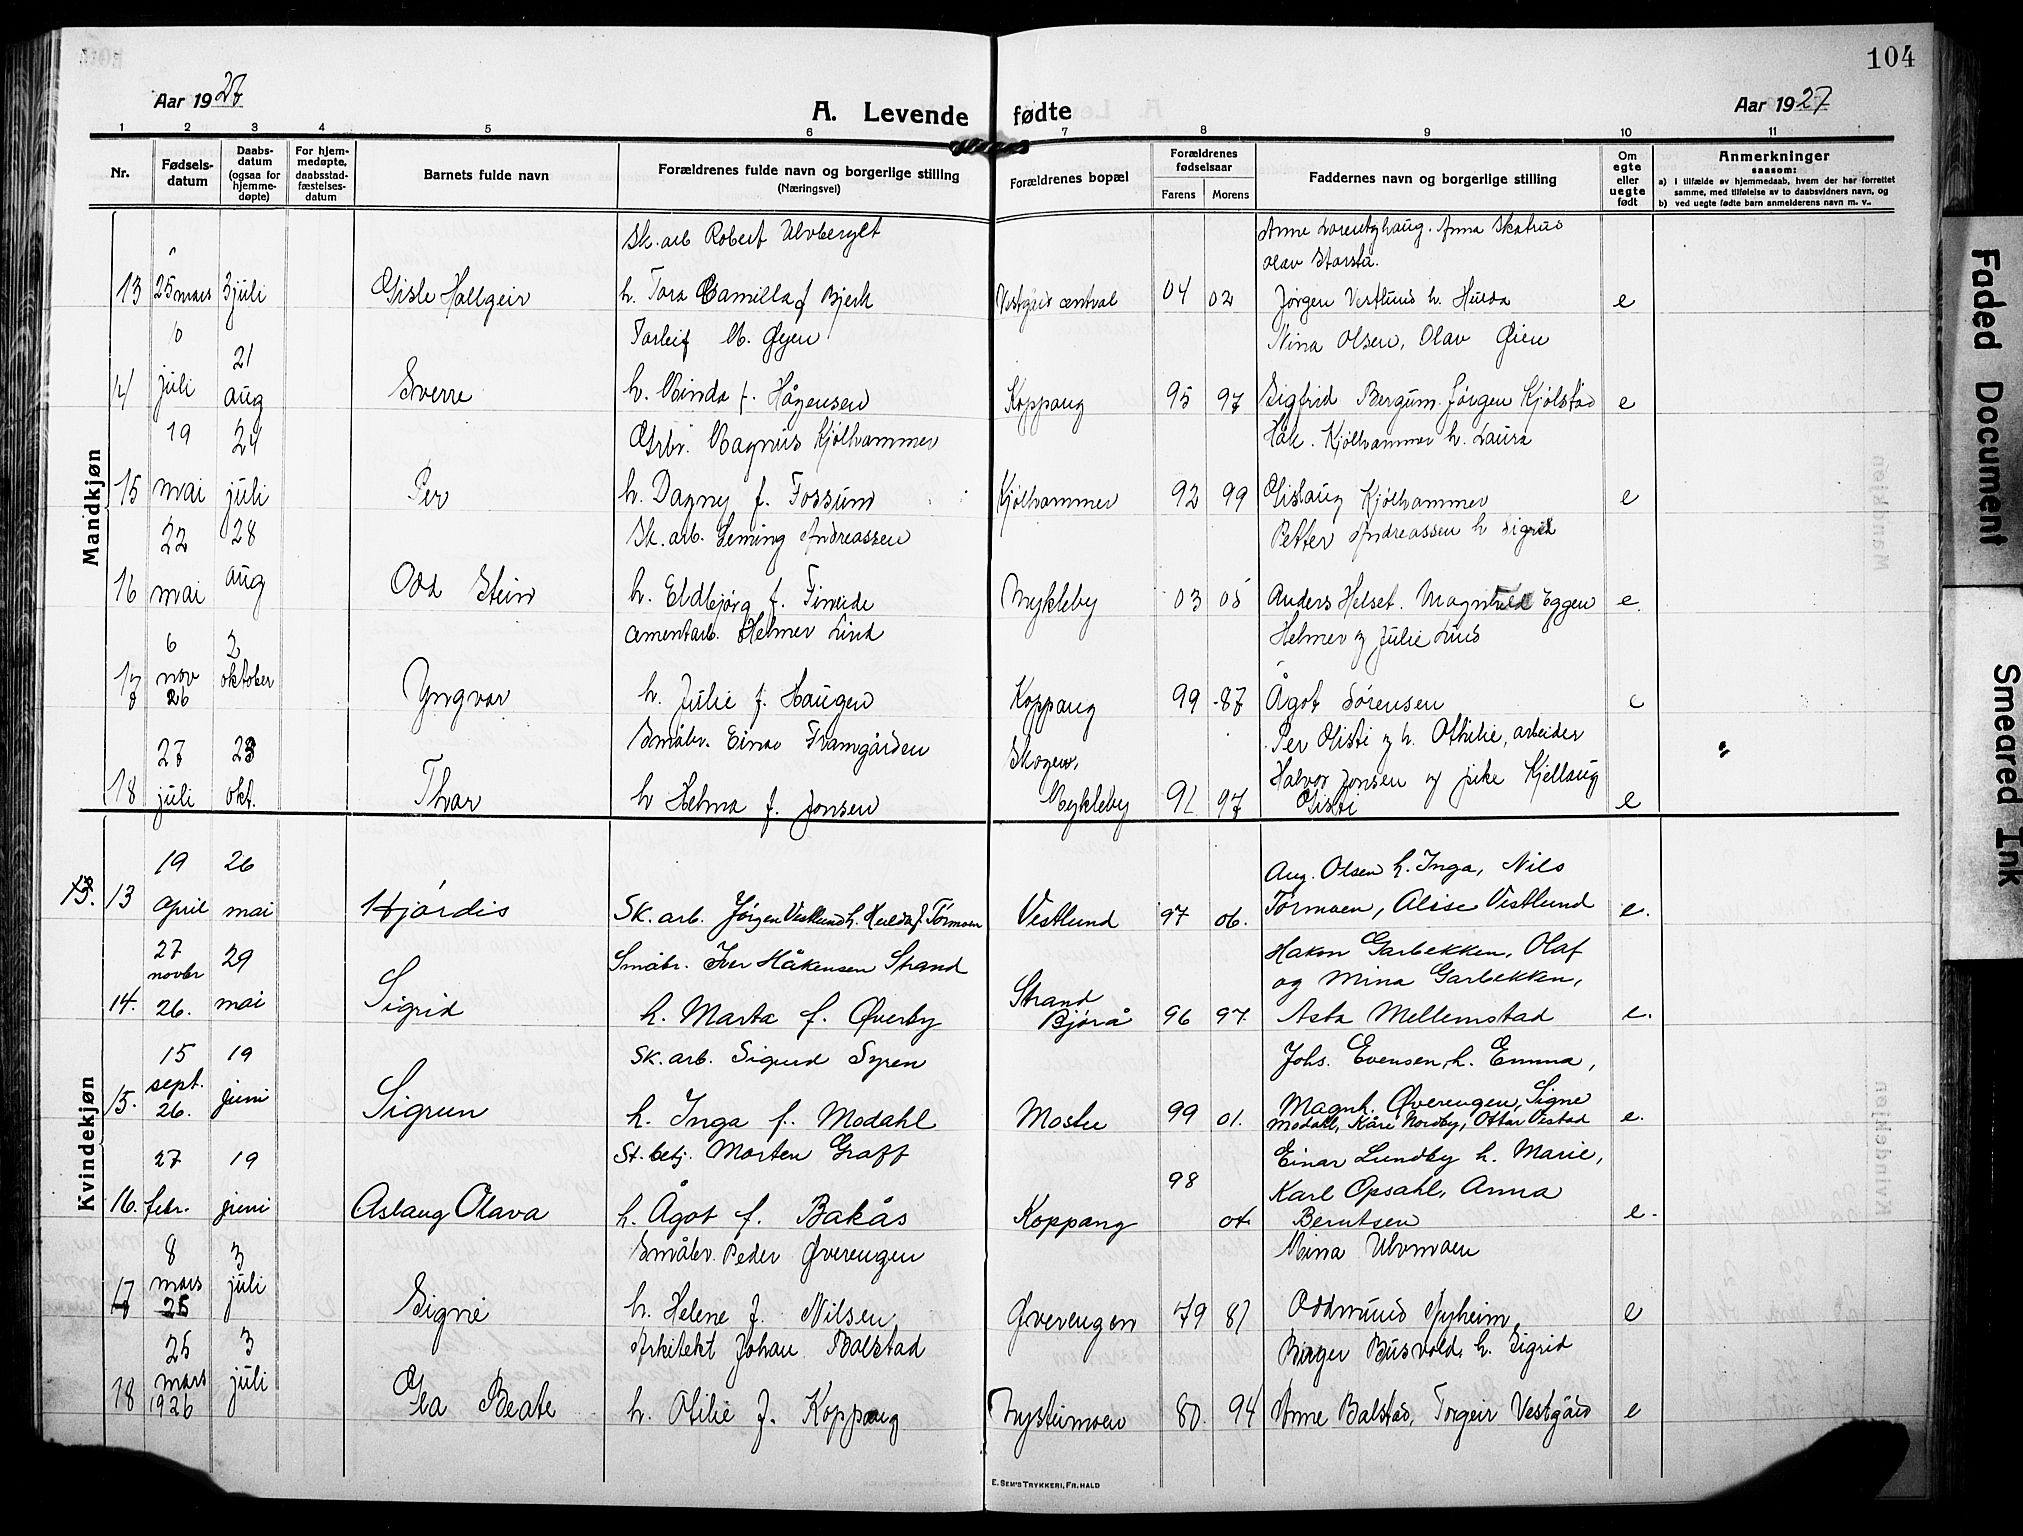 104
Aar 1927
A. Levende fødte
Aar 1927
1 2 3 4 5 6 7 8 9 10 11
Nr.
Fødsels-
datum
Daabs-
datum
(ogsaa for
hjemme-
døpte)
For hjem-
medøpte,
daabsstad-
fæstelses-
datum
Barnets fulde navn
Forældrenes fulde navn og borgerlige stilling
(Næringsvei)
Forældrenes bopæl
Forældrenes
fødselsaar
Farens Morens
Faddernes navn og borgerlige stilling
Om
egte
eller
uegte
født
Anmerkninger
saasom:
a) i tilfælde av hjemmedaab, hvem der har forrettet
samme, med tilføielse av to daabsvidners navn, og
b) ved uegte fødte barn anmelderens navn m. v..
Mandkjøn
Sk. arb Robert Anna Skatrud
Olav Storstad.
13 25 mars 3 juli Gisle Hallgeir h. Tora Camilla f Bjerk Vestgård central 04 02 Jørgen Vestlund h. Hulda e
Torleif M. Øyen Nina Olsen, Olav Øien
14 juli 21 aug Sverre h. Minda f. Hågensen Koppang 95 97 Sigfrid Bergum. Jørgen Kjølstad e
19 24 Grbr. Magnus Kjølhammer Håk. Kjølhammer h. Laura
15 mai juli Per h. Dagny f. Fossum Kjølhammer 92 99 Gislaug Kjølhammer e
22 28 Sk. arb. Leming Andreassen Petter Andreassen h Sigrid
16 mai aug Odd Stein h. Eldbjørg f. Finside Mykleby 03 05 Anders Helset. Magnhild Eggen e.
6 2 Cementarb. Helmer Lind Helmer og Julie Lind
17 nov 26 oktober Yngvar h. Julie f. Haugen Koppang 99 -87 Ågot Sørensen e
27 23 Småbr. Einar Framgården Skogen, Per Gisti og h. Othilie, arbeider
Halvor Jonsen og pike Kjellaug
18 juli okt. Thvar h Helma f. Jonsen Mykleby 91 97 Gisti e
Kvindekjøn
19 26 Aug. Olsen h. Inga, Nils
13 april mai Hjørdis Sk. arb. Jørgen Vestlund h. Hulda f. Tørmoen Vestlund 97 06. Tørmoen, Alise Vestlund e.
27 novbr 29 Småbr. Iver Håkensen Strand Hakon Garbekken, Olaf
og Mina Garbekken,
14. 26. mai Sigrid h. Marta f. Øverby Strand Bjørå 96 97. Asta Mellemstad e.
15 19 Sk. arb. Sigurd Syren Johs. Evensen, h. Emma,
sept. Magnh. Øverengen, Signe
15. 26. juni Sigrun h. Inga f. Modahl Mostu 99 01. Modahl, Kåre Nordby, Ottar Vestad e.
27 19 St. betj. Morten Graff Einar Lundby h. Marie,
98 Karl Opsahl, Anna
16. febr. juni Aslaug Olava h. Ågot f. Bakås Koppang 04 Berntsen e.
8 3 Småbr. Peder Øverengen Mina Ulvmoen
17 mars 26 juli Signe h. Helene f. Nilsen Øverengen 79 87 Oddmund Nyheim, e
25 3 Arkitekt Johan Balstad Birger Busvold, h. Sigrid
18 mars 1926 juli Beate h. Otilie f. Koppang Nystumoen 80. 94 Anne Balstad, Torgeir Vestgård e
E. SEM'S TRYKKERI, FR.HALD
Faded Document
Smeared Ink